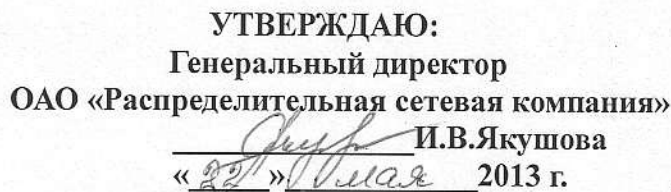 УТВЕРЖДАЮ:
Генеральный директор
ОАО «Распределительная сетевая компания»
И.В.Якушова
«22» мая 2013 г.